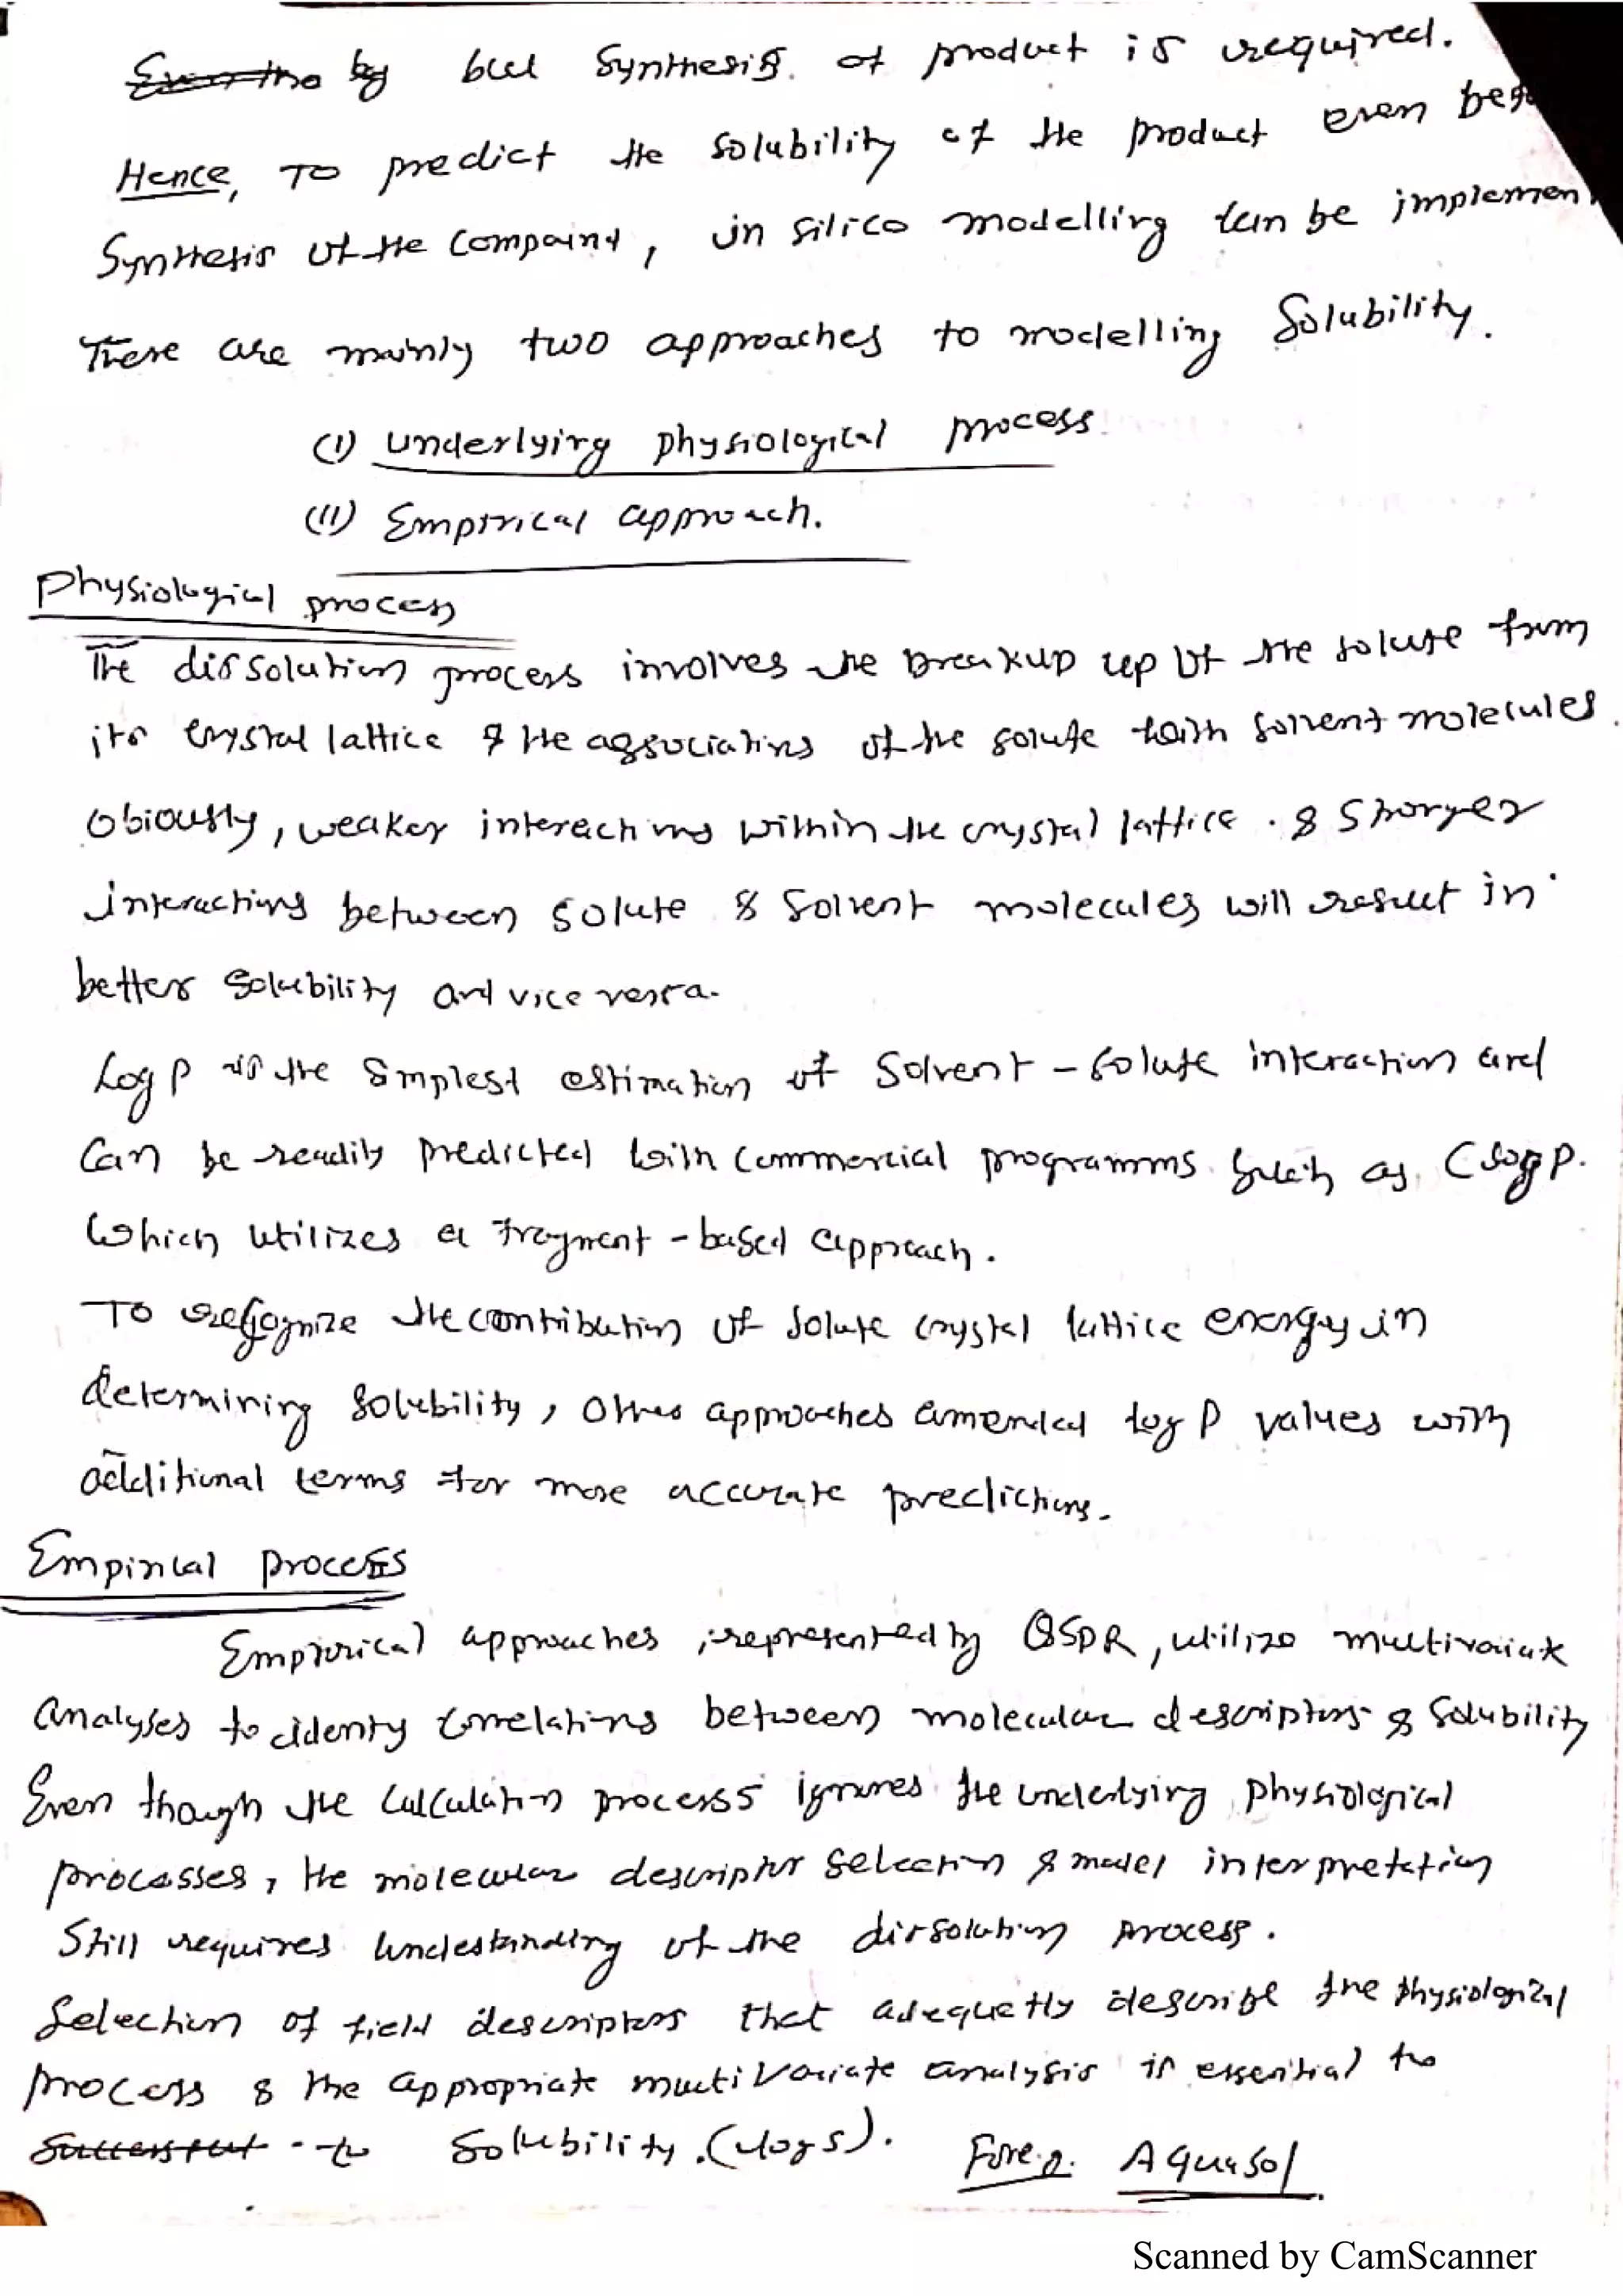 by but Synthesis of product is required.
Hence, To predict the solubility of the product even
Synthesis of the Compound, in silico modelling can be implemen
There are mainly two approaches to modelling Solubility.
(I) underlying physiological process
(II) Empirical approach.
Physiological process
The dissolution process involves the breakup up of the solute from
its crystal lattice & the associations of the solute with solvent molecules.
Obiously, weaker interactions within the crystal lattice & Stronger
interactions between solute & Solvent molecules will result in
better solubility and vice versa.
Log P is the Smplest estimation of Solvent - solute interaction and
Can be readily predicted with commercial programms such as ClogP.
Which utilizes a fragment - based approach.
To recognize the contribution of solute crystal lattice energy in
determining solubility, Other approaches amended log P values with
additional terms for more accurate predictions.
Empirical process
Empirical approaches, represented by QSPR, utilize multivariate
analyses to identy correlations between molecular descriptors & Solubility
Even though the calculation process ignores the underlying physiological
processes, the molecular descriptor selection & model interpretation
Still requires understanding of the dissolution process.
Selection of field descriptors that adequetly describe the physiological
process & the appropriate multivariate analysis is essential to
to Solubility. (logs). For e.g. Aquasol
Scanned by CamScanner